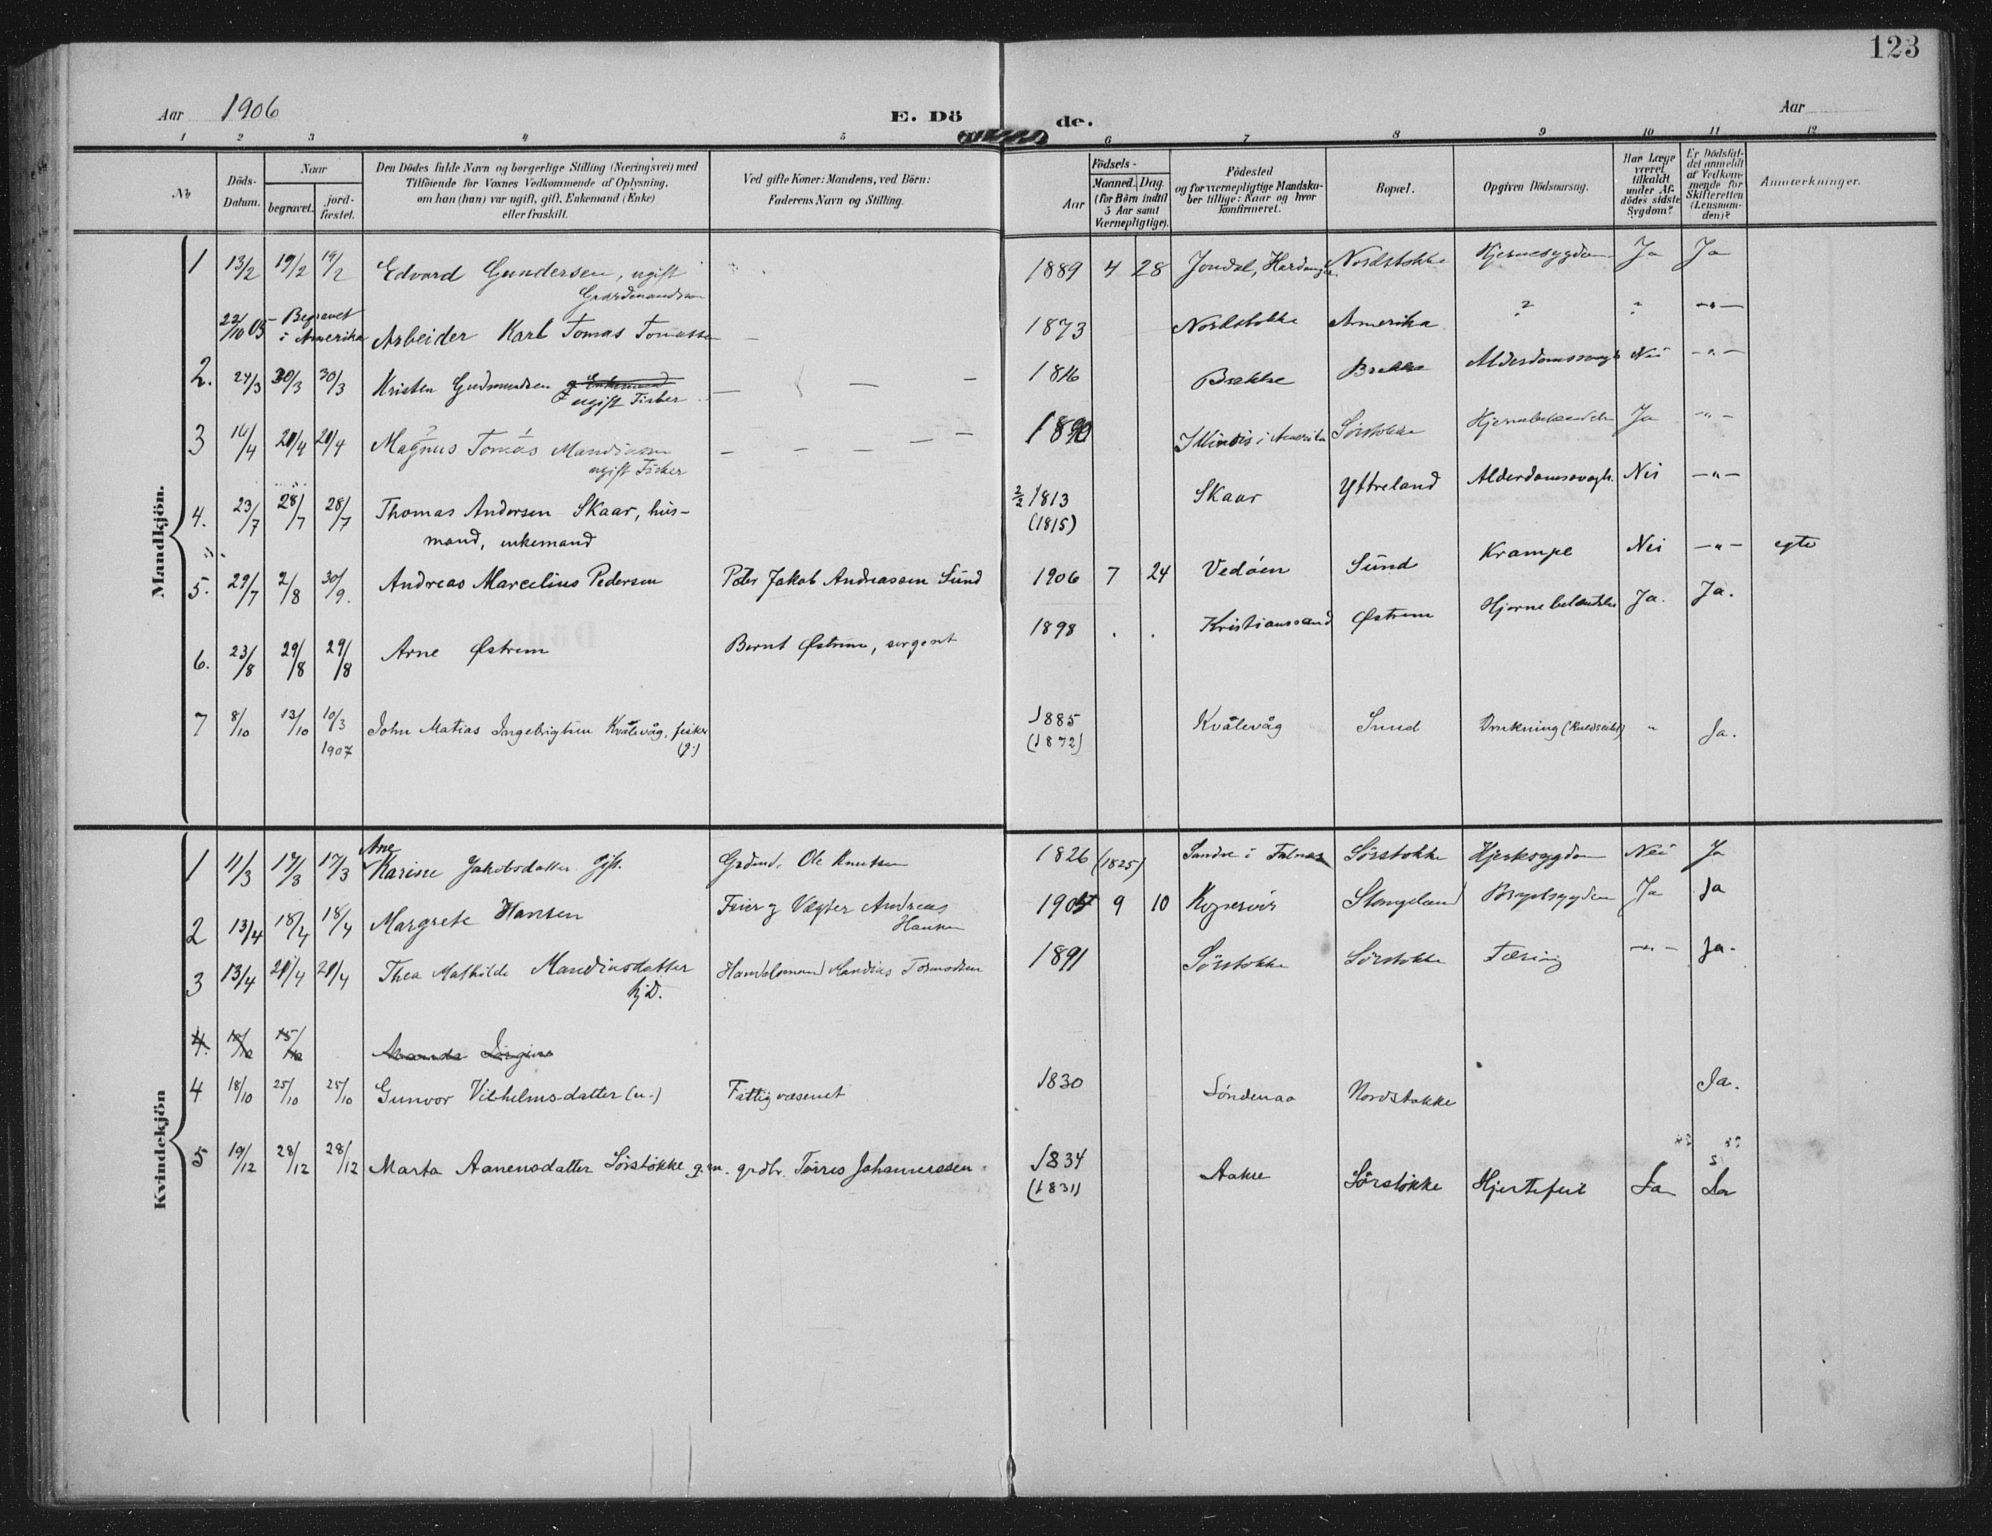 123
Aar 1906 E. Dö de. Aar
1 2 3 4 5 6 7 8 9 10 11 12
No
Döds-
Datum.
Naar
begravet.
jord-
fæstet.
Den Dödes fulde Navn og borgerlige Stilling (Næringsvei) med
Tilföiende for Voxnes Vedkommende af Oplysning,
om han (hun) var ugift, gift, Enkemand (Enke)
eller fraskilt.
Ved gifte Koner: Mandens, ved Börn:
Faderens Navn og Stilling.
Födsels-
Aar
Maaned.
Dag.
(for Börn indtil
5 Aar samt
Værnepligtige).
Födested
og for værnepligtige Mandska-
ber tillige: Naar og hvor
konfirmeret.
Bopæl.
Opgiven Dödsaarsag.
Har Læge
været
tilkaldt
under Af-
dödes sidste
Sygdom?
Er Dödsfal-
det anmeldt
af Vedkom-
mende for
Skifteretten
(Lensman-
den)?
Anmærkninger.
Mandkjön.
1 13/2 19/2 19/2 Edvard Gundersen, ugift 1889 4 28 Jondal, Nordstokke Ja Ja
Gaardmandssøn
22/10 05 - Begravet
i Amerika Arbeider Karl Tomas 1873 Nordstokke Amerika ? " -"-
2. 24/3 30/3 30/3 Kristen Gudmundsen 1816 Brekke Brekke Nei -"-
ugift Fisker
3 16/4 21/4 21/4 Magnus Tomas 1890 Illinois i Amerika Sørstokke Ja -"-
ugift Fisker
4. 23/7 28/7 28/7 Thomas Andersen Skaar, hus- 1813 Skaar Yttreland Nei -"-
mand, enkemand (1815)
5. 29/7 2/8 30/9. Andreas Marcelius Pedersen Peder Jakob Andreassen Sund 1906 7 24 Vedøen Sund Krampe Nei -"- egte
6. 23/8 29/8 29/8 Arne Østrem Bernt Østrem, sergent 1898 . . Kristianssand Østrem Ja. Ja.
7 8/10 13/10 10/3 John Matias Ingebrigtsen Kvalevåg, fisker 1885 Kvalevåg Sund Drukning " Ja.
1907 (g.) (1872)
Kvindekjön
1 11/3 17/3 17/3 Ane
Karine Jakobsdatter. gift. Grdmd. Ole Knutsen 1826 (1825) Sandve i Falnes Sørstokke Nei Ja
2 13/4 18/4 18/4 Margrete Hansen Feier og Vægter Andreas 1905 9 10 Kopervik Stangeland Ja Ja
Hansen
3 13/4 21/4 21/4 Thea Mathilde Mandiusdatter Handelsmand Mandius Tormodsen 1891 Sørstokke Sørstokke Tæring -"- Ja.
4 18/10 25/10 25/10 Gunvor Vilhelmsdatter (u.) Fattigvæsenet 1830 Søndenaa Nordstokke Ja.
5 19/12 28/12 28/12 Marta Aanensdatter Sørstokke g.m. grdbr. Tørres Johannessen 1834 Aakre Sørstokke Hjertefeil Ja Ja
(1831)